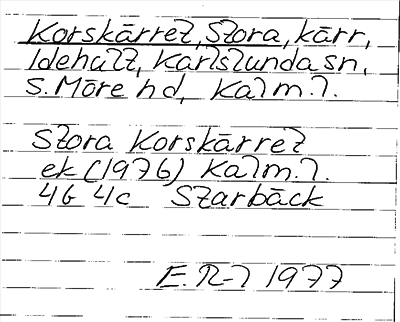 Korskärret, Stora, kärr,
Idehult, Karlslunda sn,
S. Möre hd, Kalm. l.
Stora Korskärret
ek (1976) Kalm. l.
4G 4c Starbäck
E. R-l 1977